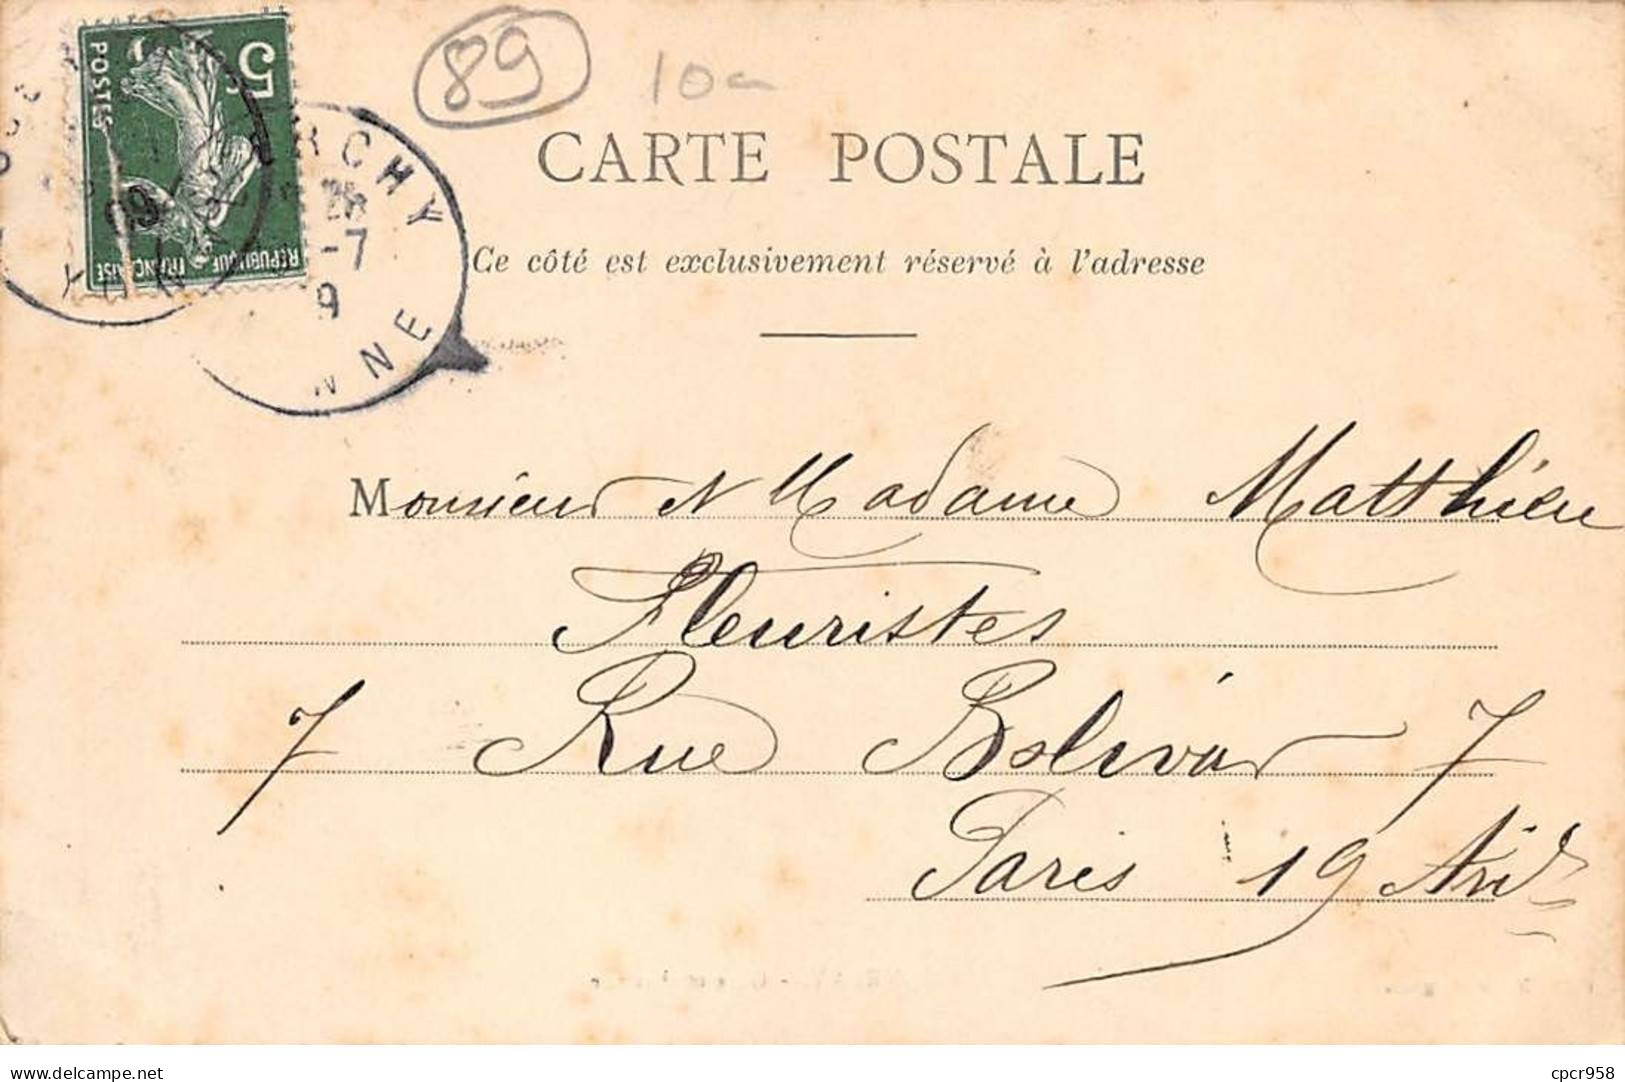 89
10
5c
POSTES
REPUBLIQUE FRANÇAISE
CARTE POSTALE
Ce côté est exclusivement réservé à l'adresse
Monsieur et Madame Matthieu
Fleuristes
7 Rue Bolivar 7
Paris 19 Ar
delcampe.net
cpcr958